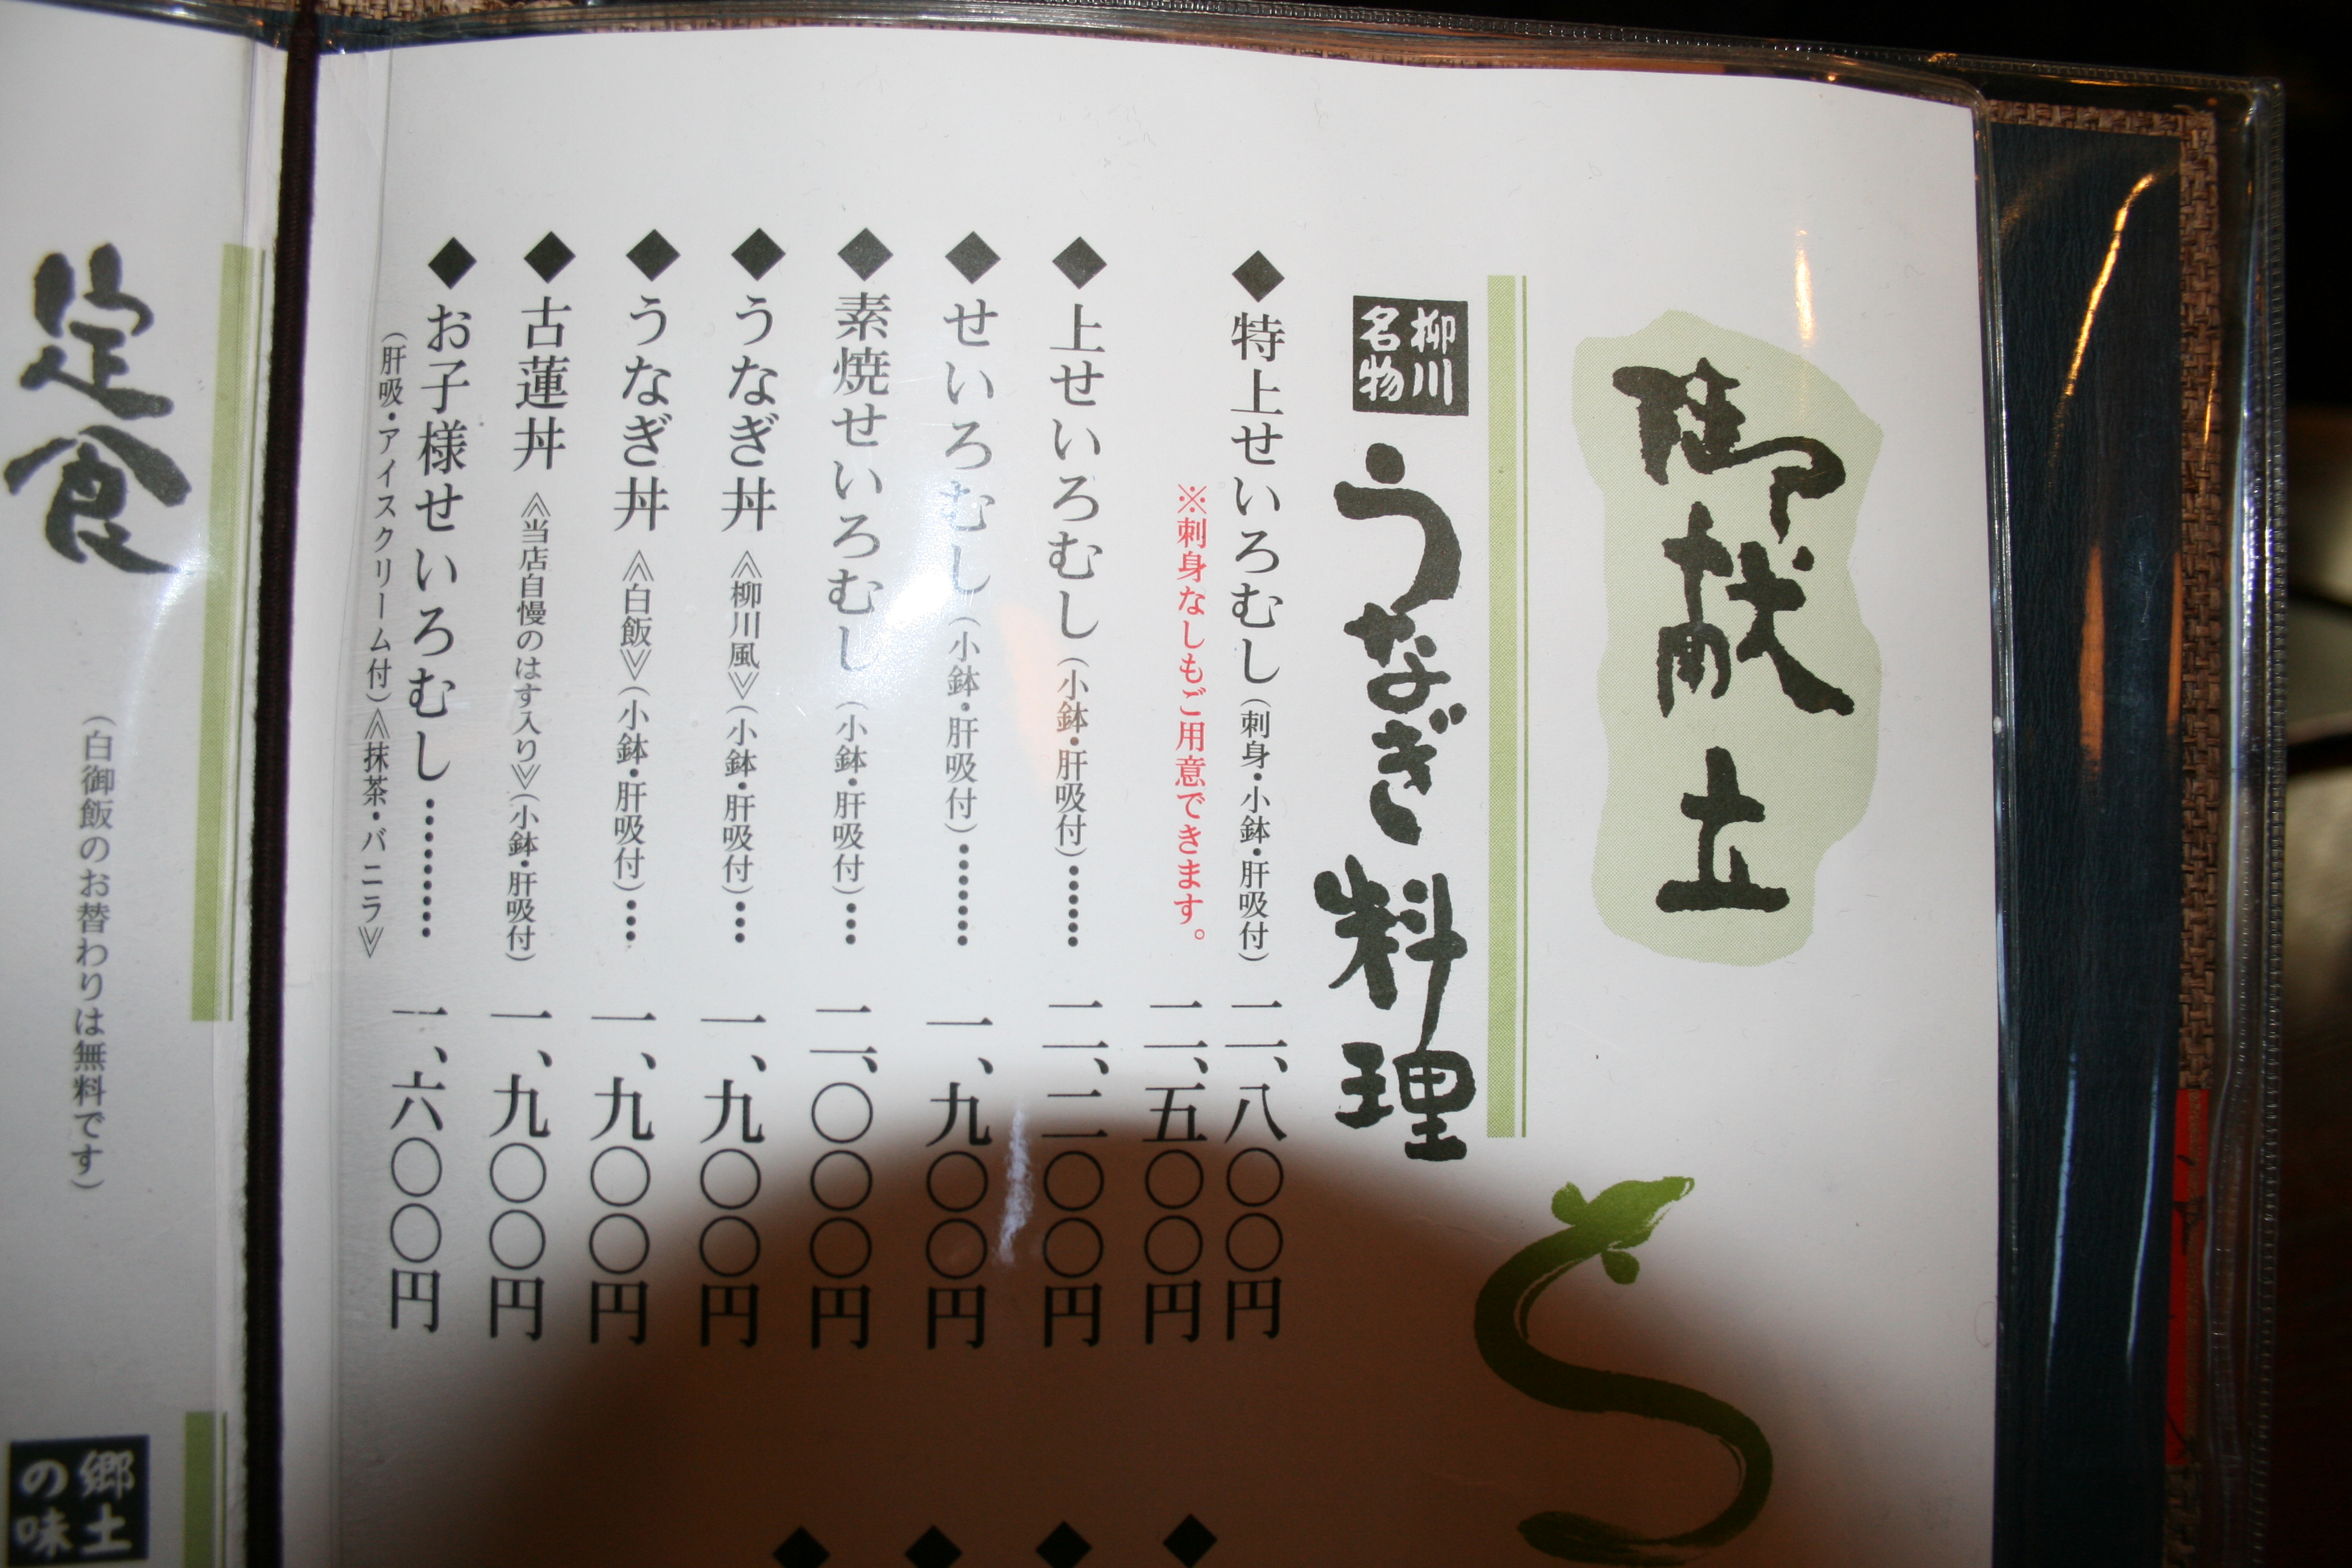 御献立
柳川名物
うなぎ料理
◆特上せいろむし(刺身・小鉢・肝吸付)二、八〇〇円
※刺身なしもご用意できます。二、五〇〇円
◆上せいろむし(小鉢・肝吸付)……二、二〇〇円
◆せいろむし(小鉢・肝吸付)………一、九〇〇円
◆素焼せいろむし(小鉢・肝吸付)…二、〇〇〇円
◆うなぎ丼《柳川風》(小鉢・肝吸付)…一、九〇〇円
◆うなぎ丼《白飯》(小鉢・肝吸付)…一、九〇〇円
◆古蓮丼《当店自慢のはす入り》(小鉢・肝吸付)一、九〇〇円
◆お子様せいろむし…………一、六〇〇円
(肝吸・アイスクリーム付)《抹茶・バニラ》
定食
(白御飯のお替わりは無料です)
郷土の味